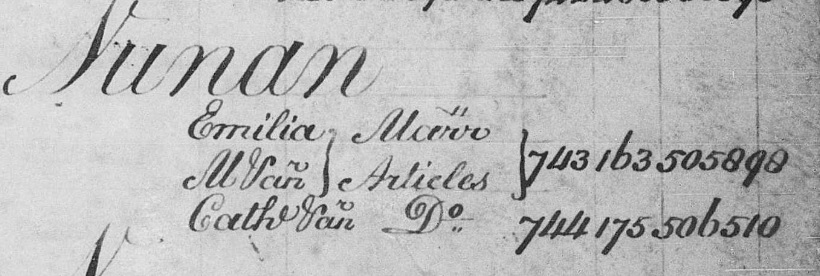 Nunan
Emilia } Marr
M Van } Articles } 743 163 505 898
Cath Van Do. 744 175 506 510